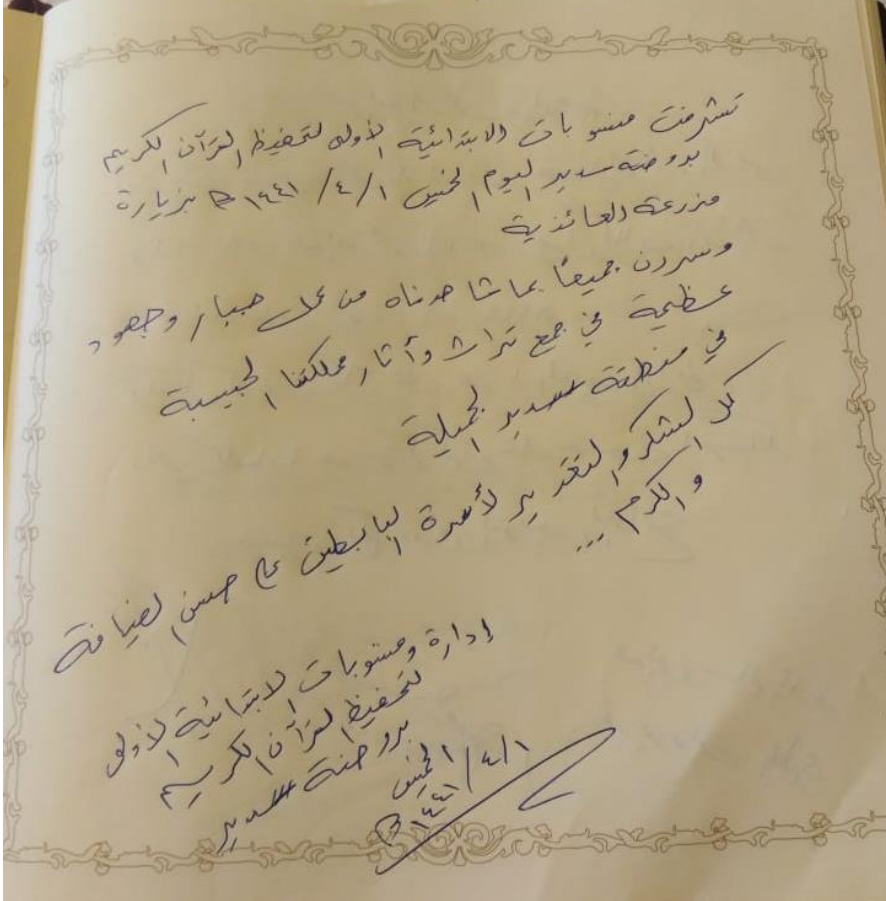 تشرفت منسوبات الابتدائية الأولى لتحفيظ القرآن الكريم
بروضة سدير اليوم الخميس ١ / ٤ / ١٤٤١ هـ بزيارة
مزرعة العائذية
وسررن جميعًا بما شاهدناه من عمل جبار وجهود
عظيمة في جمع تراث وآثار مملكتنا الحبيبة
في منطقة سدير الجميلة
كل الشكر والتقدير لأسرة البابطين على حسن الضيافة
والكرم ...
إدارة ومنسوبات الابتدائية الأولى
لتحفيظ القرآن الكريم
بروضة سدير
الخميس
١ / ٤ / ١٤٤١ هـ